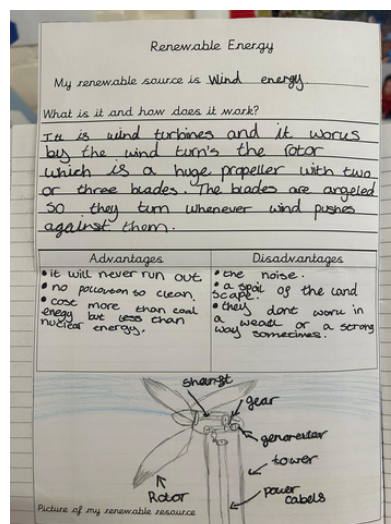 Renewable Energy
My renewable source is Wind energy.
What is it and how does it work?
It is wind turbines and it works
by the wind turn's the rotor
which is a huge propeller with two
or three blades. The blades are angeled
so they turn whenever wind pushes
against them.
Advantages
• it will never run out
• no polloution so clean.
• cost more than coal
enegy but less than
nuclear energy.
Disadvantages
• the noise.
• a spoil of the land
scape.
• they dont work in
a weak or a strong
way sometimes.
shanft
gear
generator
tower
power
cabels
Rotor
Picture of my renewable resource